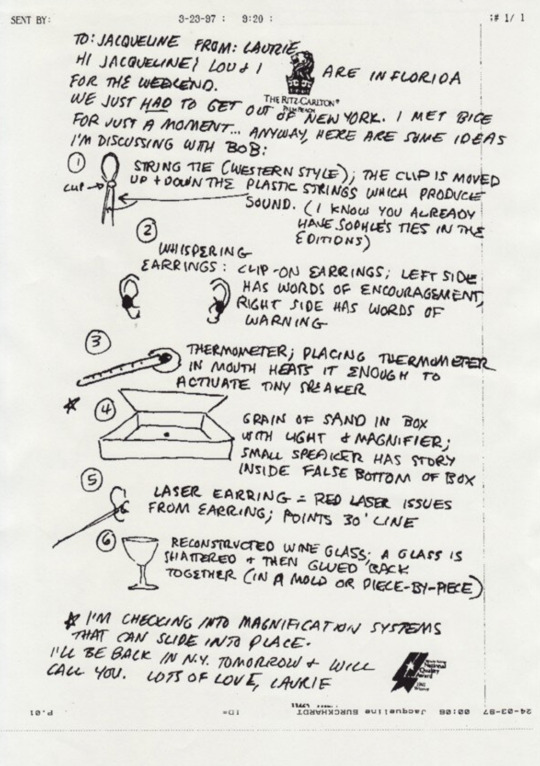 SENT BY:                3-23-97 :   9:20 :                :# 1/ 1
TO: JACQUELINE FROM: LAURIE
HI JACQUELINE! LOU & I ARE IN FLORIDA
FOR THE WEEKEND.
THE RITZ-CARLTON®
PALM BEACH
WE JUST HAD TO GET OUT OF NEW YORK. I MET BICE
FOR JUST A MOMENT... ANYWAY, HERE ARE SOME IDEAS
I'M DISCUSSING WITH BOB:
① STRING TIE (WESTERN STYLE); THE CLIP IS MOVED
CLIP → UP + DOWN THE PLASTIC STRINGS WHICH PRODUCE
SOUND. (I KNOW YOU ALREADY
HAVE SOPHIE'S TIES IN THE
EDITIONS)
②
WHISPERING
EARRINGS: CLIP-ON EARRINGS; LEFT SIDE
HAS WORDS OF ENCOURAGEMENT,
RIGHT SIDE HAS WORDS OF
WARNING
③ THERMOMETER; PLACING THERMOMETER
IN MOUTH HEATS IT ENOUGH TO
ACTIVATE TINY SPEAKER
☆ ④ GRAIN OF SAND IN BOX
WITH LIGHT & MAGNIFIER;
SMALL SPEAKER HAS STORY
INSIDE FALSE BOTTOM OF BOX
⑤ LASER EARRING = RED LASER ISSUES
FROM EARRING; POINTS 30' LINE
⑥ RECONSTRUCTED WINE GLASS; A GLASS IS
SHATTERED + THEN GLUED BACK
TOGETHER (IN A MOLD OR PIECE-BY-PIECE)
☆ I'M CHECKING INTO MAGNIFICATION SYSTEMS
THAT CAN SLIDE INTO PLACE.
I'LL BE BACK IN N.Y. TOMORROW + WILL
CALL YOU. LOTS OF LOVE, LAURIE
National
Quality
Award
Winner
24-03-97 00:06 Jacqueline BURCKHARDT ID= P.01